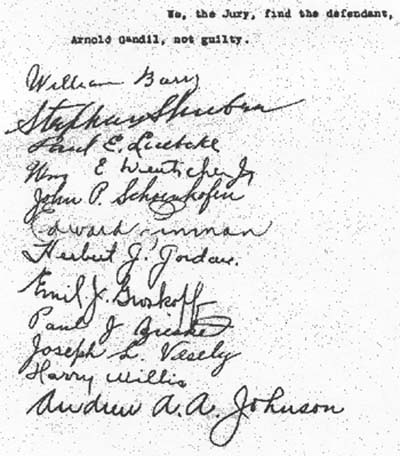 We, the Jury, find the defendant,
Arnold Gandil, not guilty.
William Barry
Stephen Shuban
Paul E. Luebcke
Wm E
John P. Schoenhofen
Edward Inman
Herbert J. Jordan.
Emil J. Groskoff
Paul J
Joseph L. Vesely
Harry Willis
Andrew A.A. Johnson